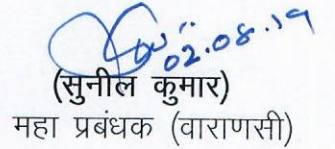 02.08.19
(सुनील कुमार)
महा प्रबंधक (वाराणसी)